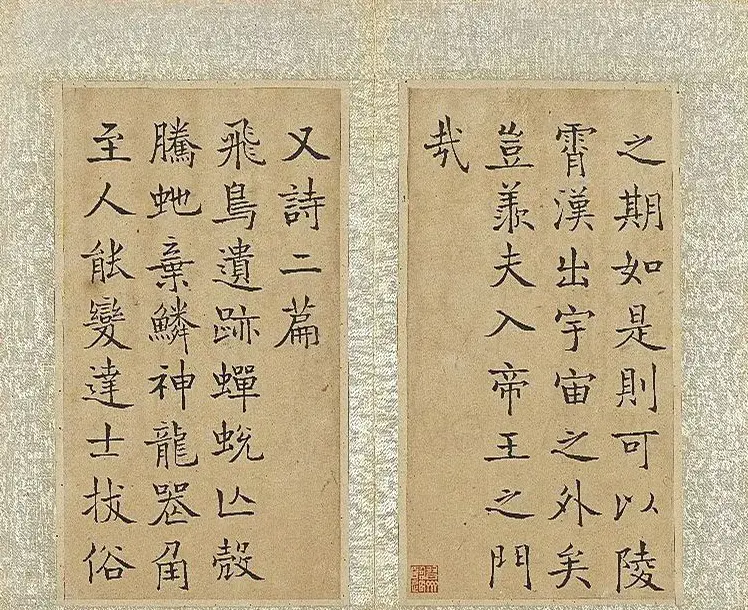 之期如是則可以陵
霄漢出宇宙之外矣
豈羨夫入帝王之門
哉
又詩二篇
飛鳥遺跡蟬蛻亾殼
騰虵棄鱗神龍喪角
至人能變達士拔俗